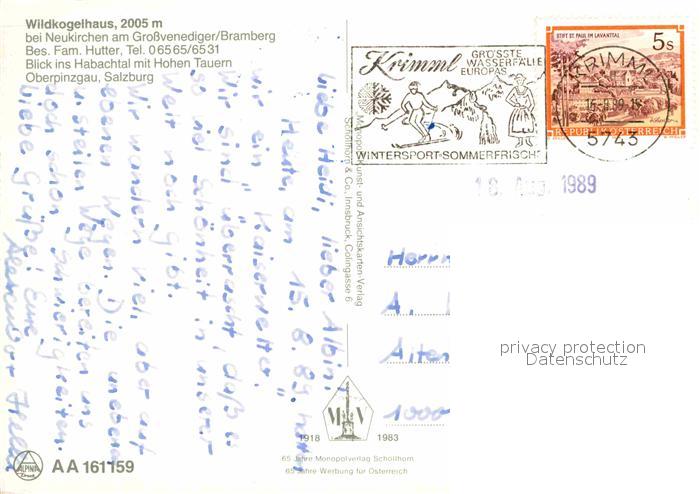 Wildkogelhaus, 2005 m
bei Neukirchen am Großvenediger/Bramberg
Bes. Fam. Hutter, Tel. 06565/6531
Blick ins Habachtal mit Hohen Tauern
Oberpinzgau, Salzburg
Krimml GRÖSSTE
WASSERFÄLLE
EUROPAS
WINTERSPORT-SOMMERFRISCHE
STIFT ST. PAUL IM LAVANTTAL
5s
REPUBLIK ÖSTERREICH
KRIMML
5743
18. Aug. 1989
Liebe Heidi, lieber Albin,
Heute am 15.8.89 haben
wir ein "Kaiserwetter".
Wir sind überrascht, daß es
so viel Schönheit in unserer
Welt noch gibt.
Wir wandern viel, aber auf
ebenen Wegen. Die unebenen
u. steilen Wege bereiten uns
doch schon Schwierigkeiten.
Liebe Grüße! Eure
Monopol-Kunst- und Ansichtskarten-Verlag
Schöllhorn & Co., Innsbruck, Colingasse 6
Herrn
A.
Aiten
1000
privacy protection
Datenschutz
M V
1918 1983
65 Jahre Monopolverlag Schöllhorn
65 Jahre Werbung für Österreich
ALPINA
Druck
AA 161159